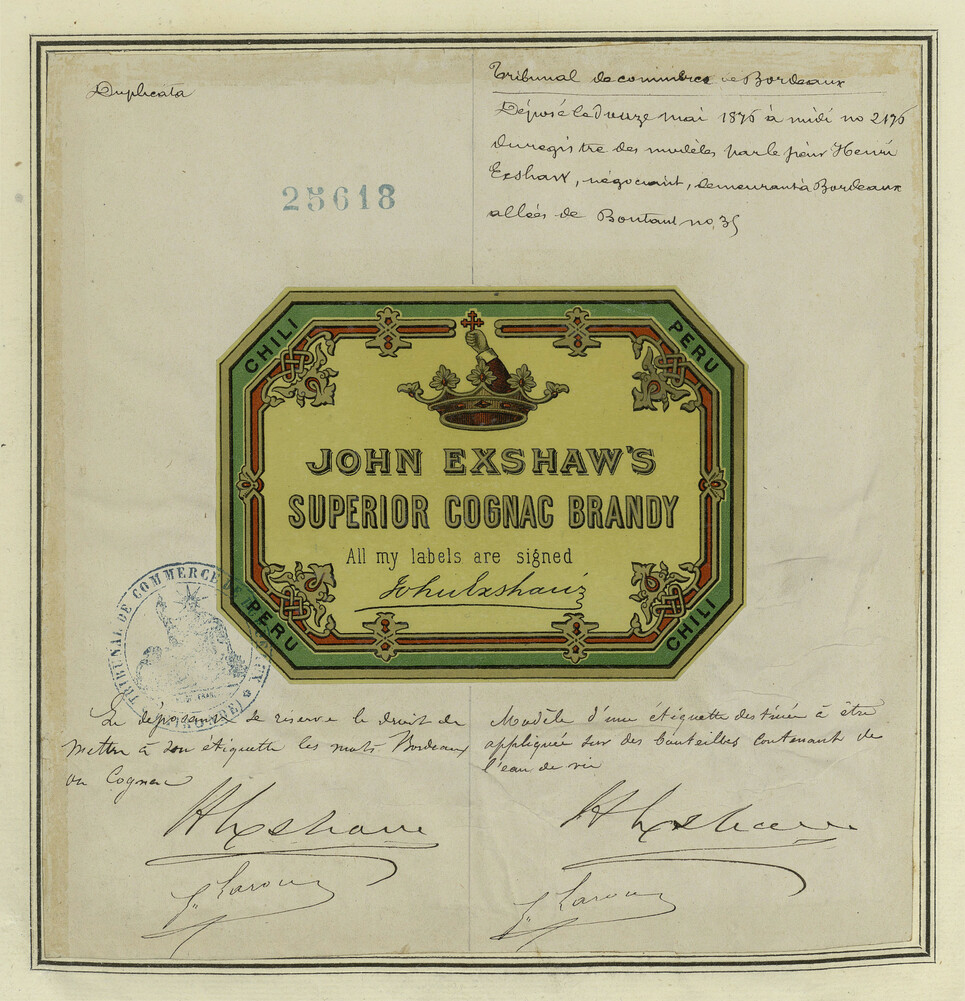 Duplicata
Tribunal de commerce de Bordeaux
Déposé le douze mai 1876 à midi no 2176
du registre des modèles par le sieur Henri
Exshaw, négociant, demeurant à Bordeaux
allées de Boutaut no 35
25618
CHILI
PERU
JOHN EXSHAW'S
SUPERIOR COGNAC BRANDY
All my labels are signed
John Exshaw
PERU
CHILI
TRIBUNAL DE COMMERCE DE
Le déposant se réserve le droit de
mettre à son étiquette les mots Bordeaux
ou Cognac
Modèle d'une étiquette destinée à être
appliquée sur des bouteilles contenant de
l'eau de vie
H Exshaw
H Exshaw